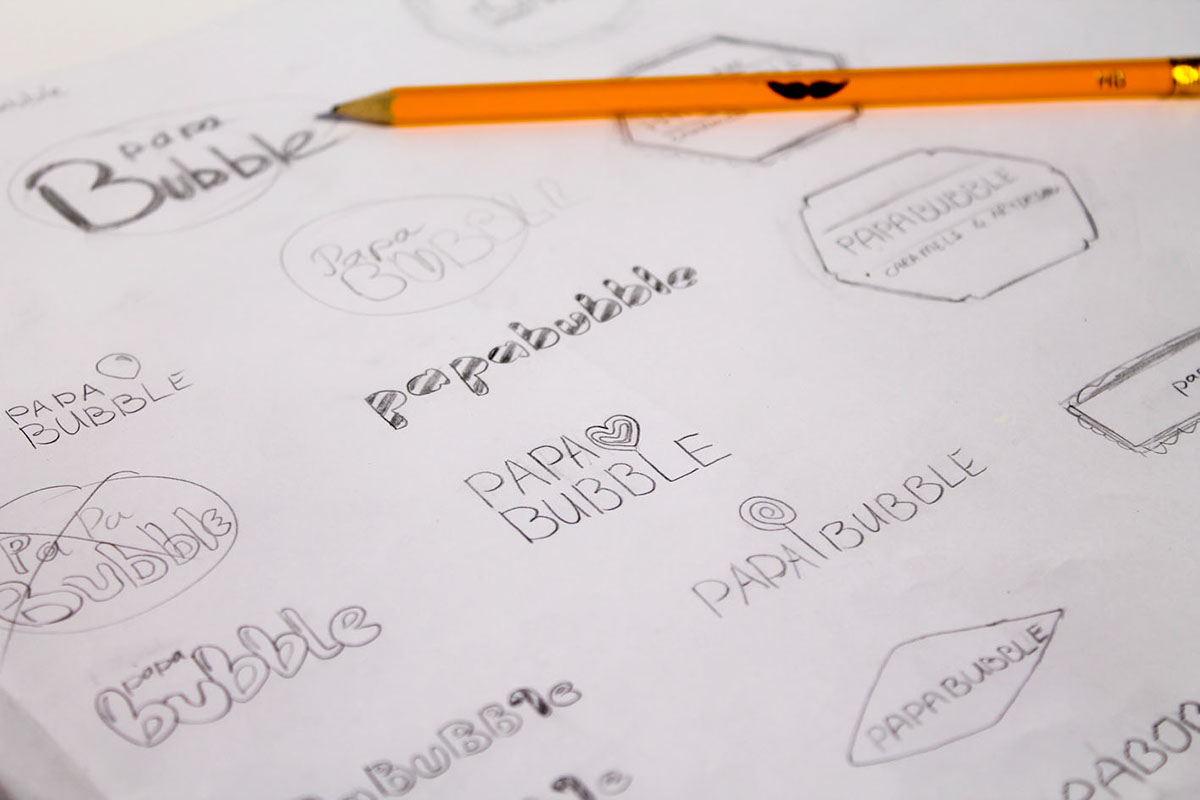 HB
papa
Bubble
Papa
BUBBLE
PAPABUBBLE
CARAMELS & ARTDESAN
papabubble
PAPA
BUBBLE
PAPA
BUBBLE
PAPA BUBBLE
PaPa
Bubble
papa
BuBBle
PAPABUBBLE